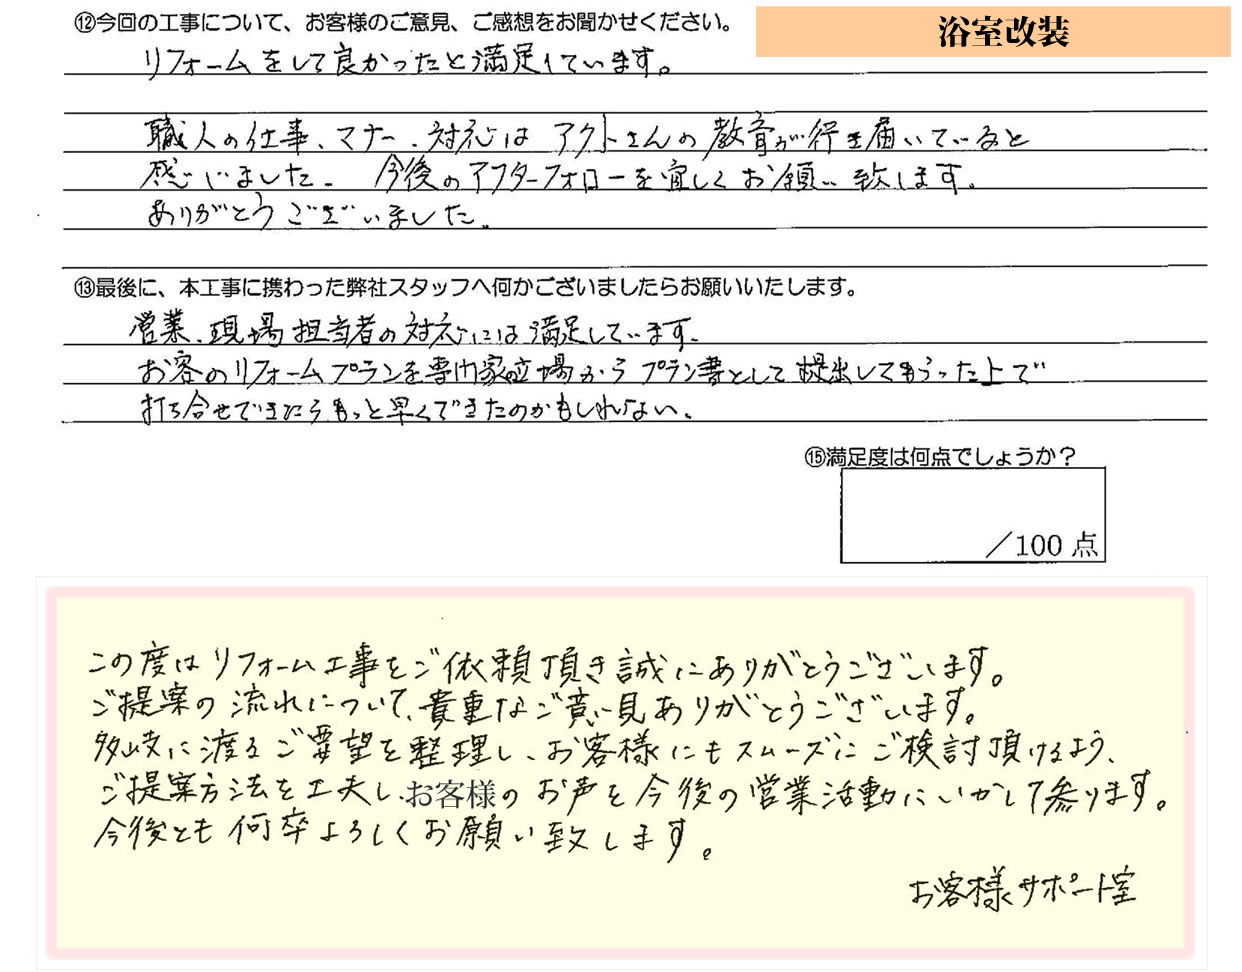 ⑫今回の工事について、お客様のご意見、ご感想をお聞かせください。
浴室改装
リフォームをして良かったと満足しています。
職人の仕事、マナー、対応は アクトさんの教育が行き届いていると
感じました。 今後のアフターフォローを宜しくお願い致します。
ありがとうございました。
⑬最後に、本工事に携わった弊社スタッフへ何かございましたらお願いいたします。
営業、現場担当者の対応には満足しています。
お客のリフォームプランを専門家立場からプラン書として提出してもらった上で
打ち合せできたらもっと早くできたのかもしれない。
⑮満足度は何点でしょうか？
／100 点
この度はリフォーム工事をご依頼頂き誠にありがとうございます。
ご提案の流れについて、貴重なご意見ありがとうございます。
多岐に渡るご要望を整理し、お客様にもスムーズにご検討頂けるよう、
ご提案方法を工夫し、お客様のお声を今後の営業活動にいかして参ります。
今後とも何卒よろしくお願い致します。
お客様サポート室